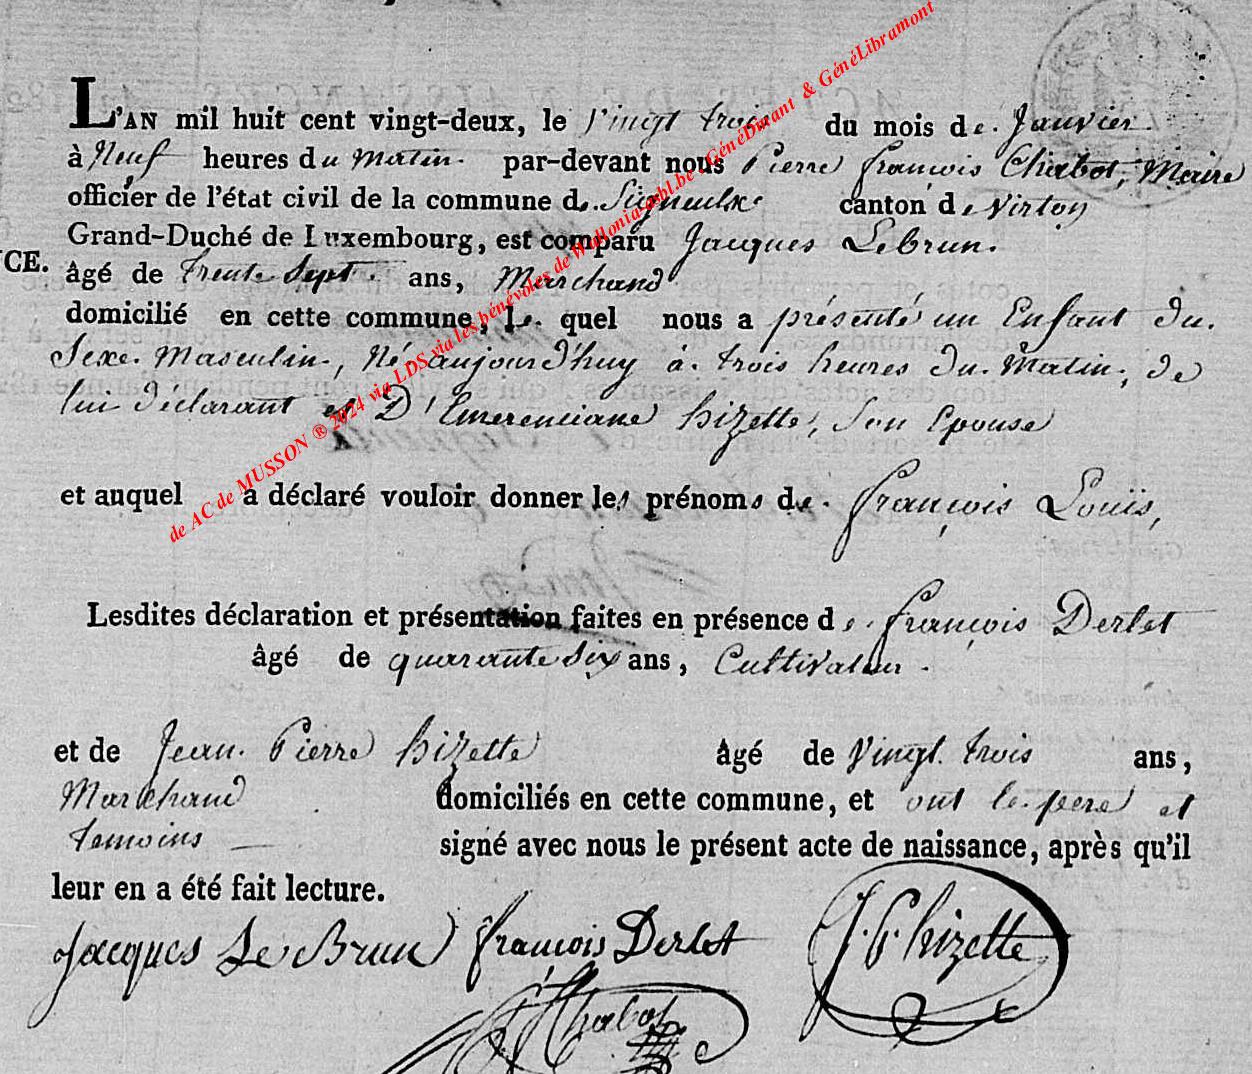 L'AN mil huit cent vingt-deux, le Vingt trois du mois de Janvier
à Neuf heures du Matin par-devant nous Pierre françois Chabot, Maire
officier de l'état civil de la commune de Signeulx canton de Virton
Grand-Duché de Luxembourg, est comparu Jacques Lebrun.
CE.
âgé de trente Sept ans, Marchand
domicilié en cette commune, Le quel nous a présenté un Enfant du
Sexe Masculin, Né aujourd'huy à trois heures du Matin, de
lui déclarant et D'Emerentiane hizette, Son Epouse
et auquel a déclaré vouloir donner les prénoms de françois Louis,
Lesdites déclaration et présentation faites en présence de françois Derlet
âgé de quarante Six ans, Cultivateur.
et de Jean Pierre hizette âgé de Vingt trois ans,
Marchand domiciliés en cette commune, et ont le pere et
temoins signé avec nous le présent acte de naissance, après qu'il
leur en a été fait lecture.
Jacques Le Brun francois Derlet J. P. hizette
Chabot
de AC de MUSSON ® 2024 via LDS via les bénévoles de Wallonia-asbl.be, GénéDinant & GénéLibramont